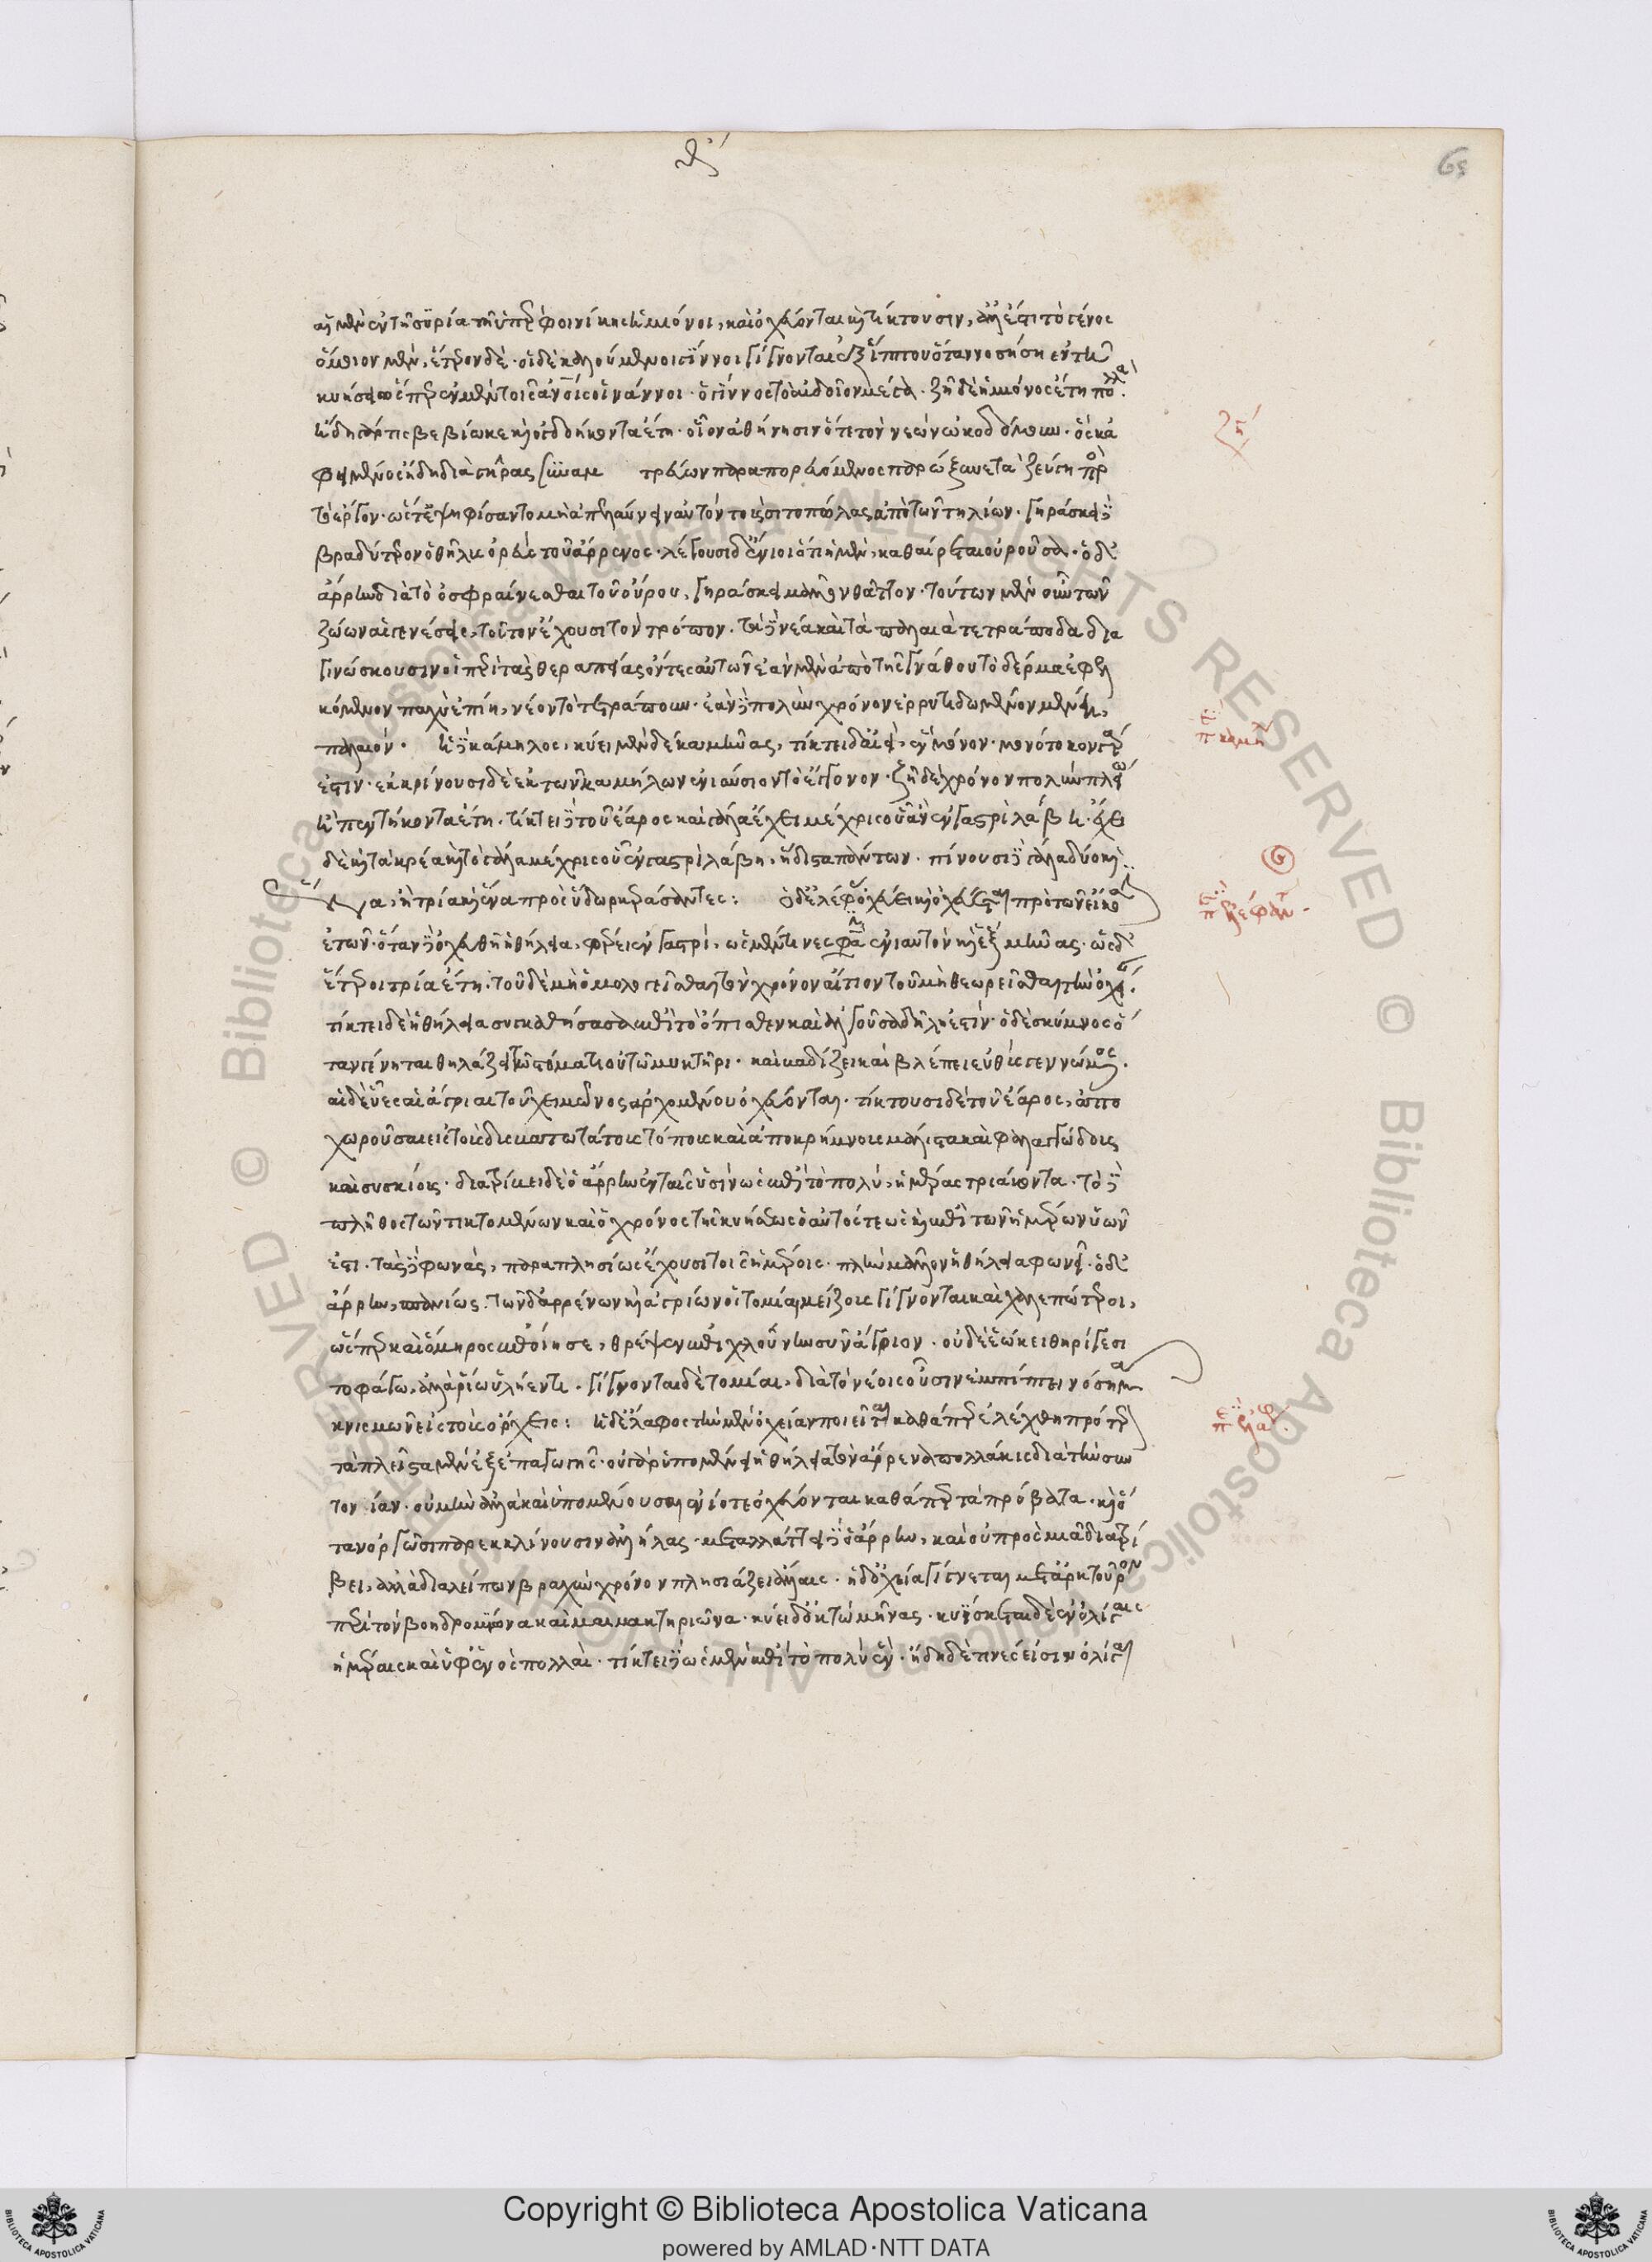 65
αἱ μὲν ἐν τῇ συρία τῇ ὑπὲρ φοινίκης ἡμίονοι, καὶ ὀχεύονται καὶ τίκτουσιν, ἀλλ' ἔστι τὸ γένος
ὅμοιον μὲν, ἕτερον δέ · οἱ δὲ καλούμενοι γίννοι γίγνονται ἐξ ἵππου ὅταν νοσήσῃ ἐν τῇ
κυήσει ὥσπερ ἐν μὲν τοῖς ἀν̅οις οἱ νάννοι · ὁ γίννος τὸ αἰδοῖον μέγα · ζῇ δὲ ἡμίονος ἔτη πολλά ·
ἤδη γάρ τις βεβίωκε καὶ ὀγδοήκοντα ἔτη · οἷον ἀθήνησιν ὅτε τὸν νεὼν ὠκοδόμουν · ὃς καὶ
ἀφειμένος ἤδη διὰ γῆρας συναμ τρεύων παραπορευόμενος παρώξυνε τὰ ζεύγη πρὸς
τὸ ἔργον · ὥστ' ἐψηφίσαντο μὴ ἀπελαύνειν αὐτὸν τοὺς σιτοπώλας ἀπὸ τῶν τηλίων · γηράσκει δὲ
βραδύτερον ὁ θῆλυς ὀρεὺς τοῦ ἄρρενος · λέγουσι δ' ἔνιοι ὅτι ἡ μὲν, καθαίρεται οὐροῦσα · ὁ δὲ
ἄρρην διὰ τὸ ὀσφραίνεσθαι τοῦ οὔρου, γηράσκει μᾶλλον θᾶττον · τούτων μὲν οὖν τῶν
ζώων αἱ γενέσεις, τοῦτον ἔχουσι τὸν τρόπον · τὰ δὲ νέα καὶ τὰ παλαιὰ τετράποδα δια
γινώσκουσιν οἱ περὶ τὰς θεραπείας ὄντες αὐτῶν ἐὰν μὲν ἀπὸ τῆς γνάθου τὸ δέρμα ἐφελ
κόμενον ταχὺ ἐπίῃ, νέον τὸ τετράπουν · ἐὰν δὲ πολὺν χρόνον ἐρρυτιδωμένον μένῃ,
παλαιόν · ἡ δὲ κάμηλος, κύει μὲν δέκα μῆνας, τίκτει δ' ἀεὶ, ἓν μόνον · μονοτόκον γάρ
ἐστιν · ἐκκρίνουσι δὲ ἐκ τῶν καμήλων ἐνιαύσιον τὸ ἔκγονον · ζῇ δὲ χρόνον πολὺν πλείω
ἢ πεντήκοντα ἔτη · τίκτει δὲ τοῦ ἔαρος καὶ γάλα ἔχει μέχρις οὗ ἂν ἐν γαστρὶ λάβῃ · ἔχει
δὲ καὶ τὰ κρέα καὶ τὸ γάλα μέχρις οὗ ἐν γαστρὶ λάβῃ, ἥδιστα πάντων · πίνουσι δὲ γάλα δύο καὶ
ἕνα, ἢ τρία καὶ ἕνα πρὸς ὕδωρ κεράσαντες : ὁ δὲ ἐλέφας ὀχεύει καὶ ὀχεύεται πρὸ τῶν εἴκοσι
ἐτῶν · ὅταν δὲ ὀχευθῇ ἡ θήλεια, φέρει ἐν γαστρί, ὡς μέν τινές φασιν ἐνιαυτὸν καὶ ἓξ μῆνας · ὡς δὲ
ἕτεροι τρία ἔτη · τοῦ δὲ μὴ ὁμολογεῖσθαι τὸν χρόνον αἴτιον τοῦ μὴ θεωρεῖσθαι τὴν ὀχείαν ·
τίκτει δὲ ἡ θήλεια συγκαθίσασα ἐπὶ τὸ ὄπισθεν καὶ ἀλγοῦσα δήλη ἐστίν · ὁ δὲ σκύμνος ὅ
ταν γένηται θηλάζει τῷ στόματι οὐ τῷ μυκτῆρι · καὶ βαδίζει καὶ βλέπει εὐθὺς γεννώμενος ·
αἱ δὲ ὕες αἱ ἄγριαι τοῦ χειμῶνος ἀρχομένου ὀχεύονται · τίκτουσι δὲ τοῦ ἔαρος, ἀπο
χωροῦσαι εἰς τοὺς δυσβατωτάτους τόπους καὶ ἀποκρήμνους μάλιστα καὶ φαραγγώδεις
καὶ συσκίους · διατρίβει δὲ ὁ ἄρρην ἐν ταῖς ὑσὶν ὡς ἐπὶ τὸ πολύ, ἡμέρας τριάκοντα · τὸ δὲ
πλῆθος τῶν τικτομένων καὶ ὁ χρόνος τῆς κυήσεως ὁ αὐτός τε ὡς καὶ ἐπὶ τῶν ἡμέρων ὑῶν
ἐστι · τὰς δὲ φωνάς, παραπλησίως ἔχουσι τοῖς ἡμέροις · πλὴν μᾶλλον ἡ θήλεια φωνεῖ · ὁ δὲ
ἄρρην, σπανίως · τῶν δ' ἀρρένων καὶ ἀγρίων οἱ τομίαι μείζους γίγνονται καὶ χαλεπώτεροι,
ὥσπερ καὶ ὅμηρος ἐποίησε, θρέψεν ἔπι χλούνην σῦν ἄγριον · οὐδὲ ἐώκει θηρί γε σι
τοφάγω, ἀλλὰ ῥίω ὑλήεντι · γίγνονται δὲ τομίαι, διὰ τὸ νέοις οὖσιν ἐμπίπτειν νόσημα
κνισμὸν εἰς τοὺς ὄρχεις : ἡ δὲ ἔλαφος τὴν μὲν ὀχείαν ποιεῖται καθάπερ ἐλέχθη πρότερον
τὰ πλεῖστα μὲν ἐξ ἐπαγωγῆς · οὐ γὰρ ὑπομένει ἡ θήλεια τὸν ἄρρενα πολλάκις διὰ τὴν συν
τονίαν · οὐ μὴν ἀλλὰ καὶ ὑπομένουσαι ἐνίοτε ὀχεύονται καθάπερ τὰ πρόβατα · καὶ ὅ
ταν ὀργῶσι παρεκκλίνουσιν ἀλλήλας · μεταλλάττει δὲ ὁ ἄρρην, καὶ οὐ πρὸς μιᾷ διατρί
βει, ἀλλὰ διαλείπων βραχὺν χρόνον πλησιάζει ἄλλαις · ἡ δ' ὀχεία γίγνεται μετ' ἀρκτοῦρον
περὶ τὸν βοηδρομιῶνα καὶ μαιμακτηριῶνα · κύει δ' ὀκτὼ μῆνας · κυΐσκεται δὲ ἐν ὀλίγαις
ἡμέραις καὶ ὑφ' ἑνὸς πολλαὶ · τίκτει δὲ ὡς μὲν ἐπὶ τὸ πολὺ ἕν · ἤδη δέ τινές εἰσιν ὀλίγαι
ζή
περὶ καμήλ
περὶ ἐλέφαντ
περὶ ἐλάφ
© Biblioteca Apostolica Vaticana ALL RIGHTS RESERVED
Copyright © Biblioteca Apostolica Vaticana
powered by AMLAD·NTT DATA
BIBLIOTECA APOSTOLICA VATICANA
BIBLIOTECA APOSTOLICA VATICANA